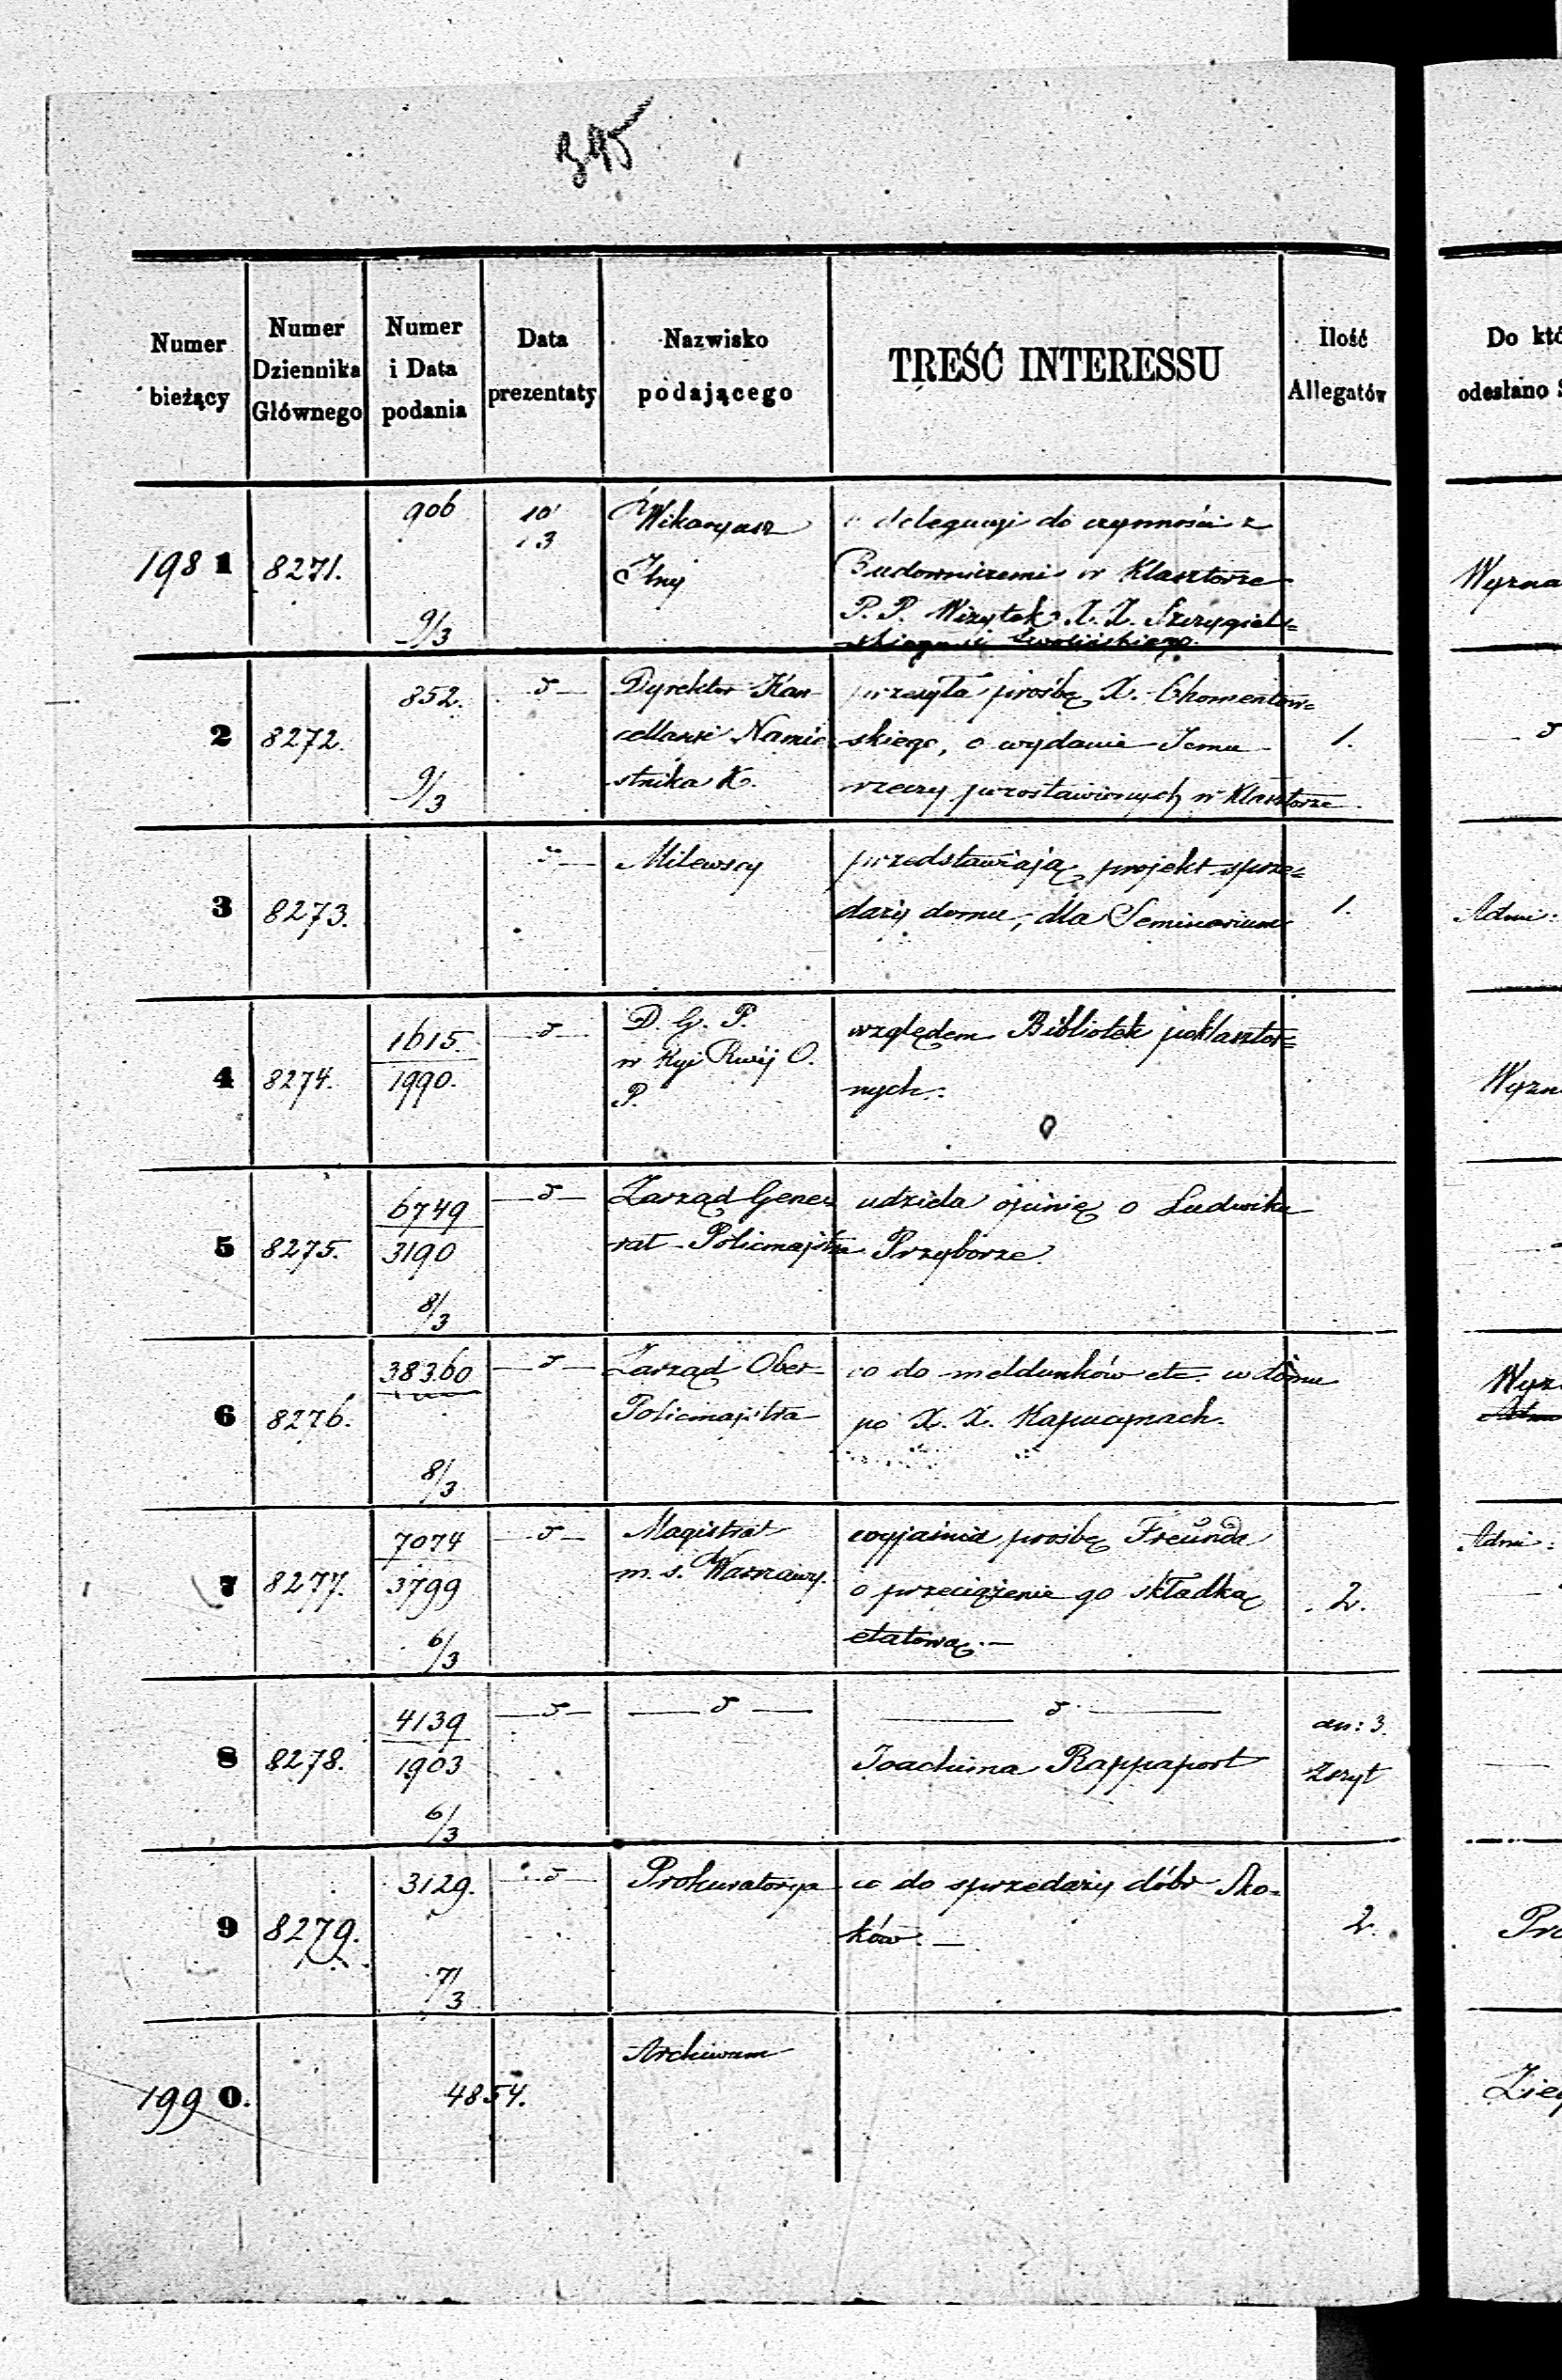 345
Numer bieżący
Numer Dziennika Głównego
Numer i Data podania
Data prezentaty
Nazwisko podającego
TREŚĆ INTERESSU
Ilość Allegatów
Do któ
odesłano S
1981 8271. 906 9/3 10/3
Wikaryusz
Jlny
o delegacyi do czynności z
Budowniczemi w Klasztorze
P. P. Wizytek X. X. Szczygiel=
skiego i
Wyzna
2 8272. 852. 9/3 - d -
Dyrektor Kan
cellarii Namie
stnika K.
przesyła prośbę X. Chomentow=
skiego, o wydanie Jemu
rzeczy pozostawionych w Klasztorze
1.
3 8273. - d -
Milewscy
przedstawiają projekt sprze=
daży domu, dla Seminarium
1.
Adm:
4 8274. 1615. 1990. - d -
D. G. P.
w Kró P.
względem Bibliotek poklasztor=
nych.
Wyzn
5 8275. 6749 3190 8/3 - d -
Zarząd Gene
rał Policmajstra
udziela opinię o Ludwiku
Przyborze.
6 8276. 38360 8/3 - d -
Zarząd Ober-
Policmajstra
co do meldunków etc. w domu
po X. X. Kapucynach.
Wyz
7 8277. 7074 3799 6/3 - d -
Magistrat
m. s. Warszawy.
wyjaśnia prośbę Freunda
o przeciążenie go składką
etatową. -
2.
Adm:
8 8278. 4139 1903 6/3 - d - - d - - d -
Joachima Rappaport
an: 3.
Zszyt
9 8279. 3129. 7/3 - d -
Prokuratorya
co do sprzedaży dóbr Sko-
ków. -
2.
Pro
1990. 4854.
Archiwum